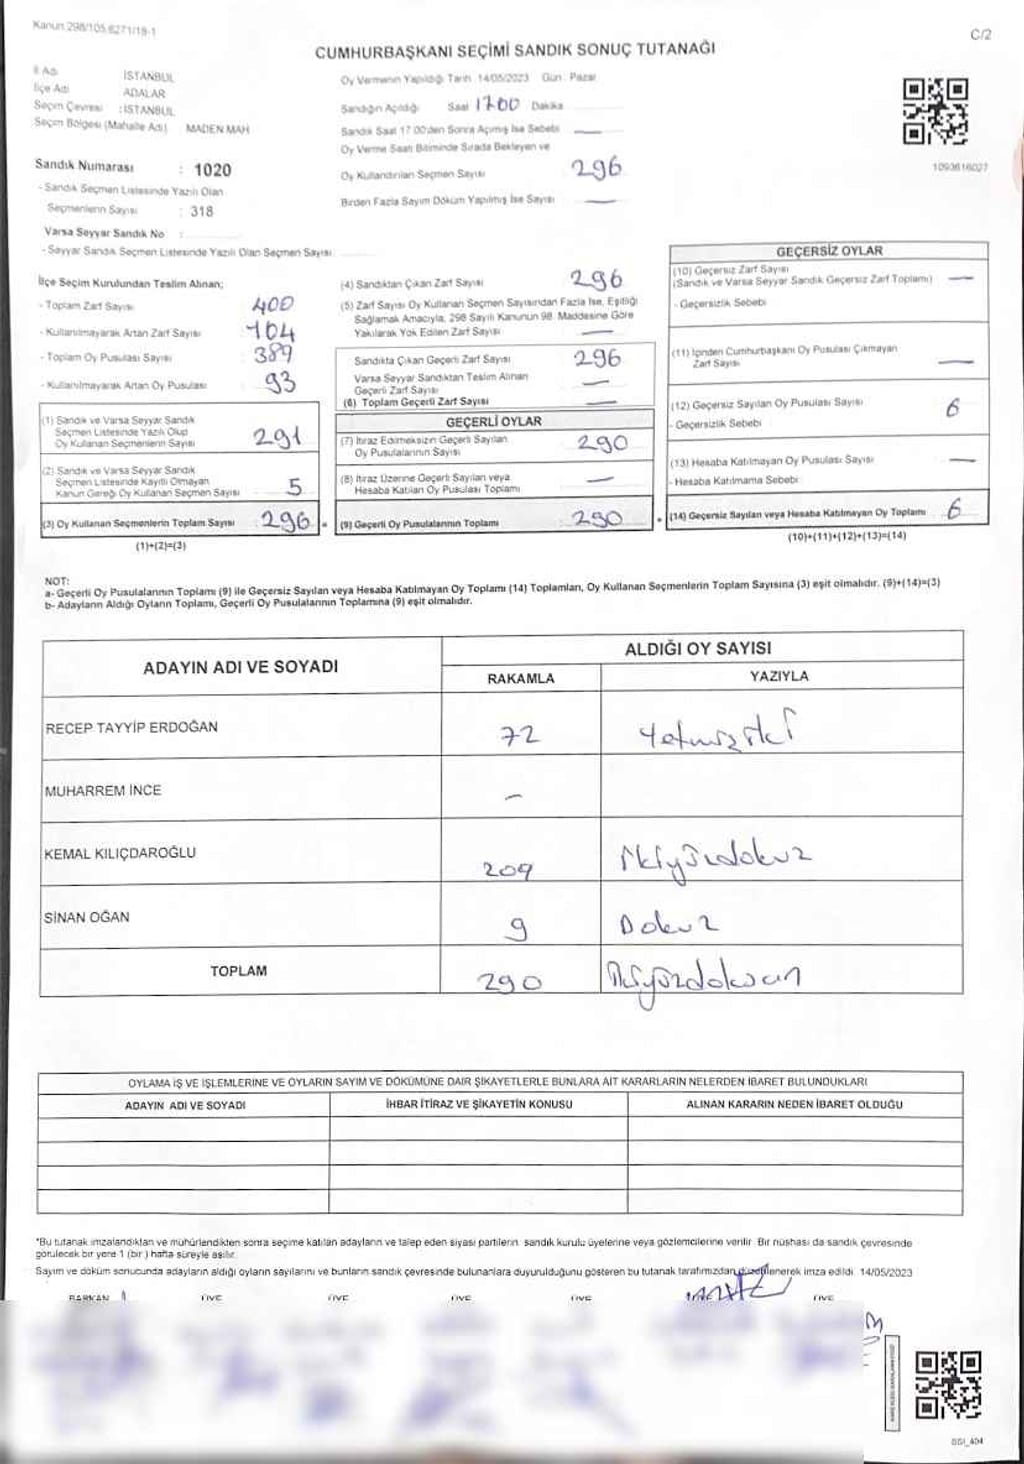 Kanun.298/105,6271/18-1
C/2
CUMHURBAŞKANI SEÇİMİ SANDIK SONUÇ TUTANAĞI
İl Adı İSTANBUL
İlçe Adı ADALAR
Seçim Çevresi : İSTANBUL
Seçim Bölgesi (Mahalle Adı) MADEN MAH
Sandık Numarası : 1020
- Sandık Seçmen Listesinde Yazılı Olan
Seçmenlerin Sayısı : 318
Varsa Seyyar Sandık No :
- Seyyar Sandık Seçmen Listesinde Yazılı Olan Seçmen Sayısı
Oy Vermenin Yapıldığı Tarih 14/05/2023 Gün : Pazar
Sandığın Açıldığı Saat 1700 Dakika
Sandık Saat 17.00'den Sonra Açılmış İse Sebebi —
Oy Verme Saati Bitiminde Sırada Bekleyen ve
Oy Kullandırılan Seçmen Sayısı 296
Birden Fazla Sayım Döküm Yapılmış İse Sayısı —
1093616027
İlçe Seçim Kurulundan Teslim Alınan;
- Toplam Zarf Sayısı 400
- Kullanılmayarak Artan Zarf Sayısı 104
- Toplam Oy Pusulası Sayısı 389
- Kullanılmayarak Artan Oy Pusulası 93
(1) Sandık ve Varsa Seyyar Sandık
Seçmen Listesinde Yazılı Olup
Oy Kullanan Seçmenlerin Sayısı 291
(2) Sandık ve Varsa Seyyar Sandık
Seçmen Listesinde Kayıtlı Olmayan
Kanun Gereği Oy Kullanan Seçmen Sayısı 5
(3) Oy Kullanan Seçmenlerin Toplam Sayısı 296 =
(1)+(2)=(3)
(4) Sandıktan Çıkan Zarf Sayısı 296
(5) Zarf Sayısı Oy Kullanan Seçmen Sayısından Fazla İse, Eşitliği
Sağlamak Amacıyla, 298 Sayılı Kanunun 98. Maddesine Göre
Yakılarak Yok Edilen Zarf Sayısı —
Sandıkta Çıkan Geçerli Zarf Sayısı 296
Varsa Seyyar Sandıktan Teslim Alınan
Geçerli Zarf Sayısı —
(6) Toplam Geçerli Zarf Sayısı —
GEÇERLİ OYLAR
(7) İtiraz Edilmeksizin Geçerli Sayılan
Oy Pusulalarının Sayısı 290
(8) İtiraz Üzerine Geçerli Sayılan veya
Hesaba Katılan Oy Pusulası Toplamı —
(9) Geçerli Oy Pusulalarının Toplamı 290 +
GEÇERSİZ OYLAR
(10) Geçersiz Zarf Sayısı
(Sandık ve Varsa Seyyar Sandık Geçersiz Zarf Toplamı) —
- Geçersizlik Sebebi
(11) İçinden Cumhurbaşkanı Oy Pusulası Çıkmayan
Zarf Sayısı —
(12) Geçersiz Sayılan Oy Pusulası Sayısı 6
- Geçersizlik Sebebi
(13) Hesaba Katılmayan Oy Pusulası Sayısı —
- Hesaba Katılmama Sebebi
(14) Geçersiz Sayılan veya Hesaba Katılmayan Oy Toplamı 6
(10)+(11)+(12)+(13)=(14)
NOT:
a- Geçerli Oy Pusulalarının Toplamı (9) ile Geçersiz Sayılan veya Hesaba Katılmayan Oy Toplamı (14) Toplamları, Oy Kullanan Seçmenlerin Toplam Sayısına (3) eşit olmalıdır. (9)+(14)=(3)
b- Adayların Aldığı Oyların Toplamı, Geçerli Oy Pusulalarının Toplamına (9) eşit olmalıdır.
ADAYIN ADI VE SOYADI
ALDIĞI OY SAYISI
RAKAMLA YAZIYLA
RECEP TAYYİP ERDOĞAN 72 Yetmişiki
MUHARREM İNCE –
KEMAL KILIÇDAROĞLU 209 İkiyüzdokuz
SİNAN OĞAN 9 Dokuz
TOPLAM 290 İkiyüzdoksan
OYLAMA İŞ VE İŞLEMLERİNE VE OYLARIN SAYIM VE DÖKÜMÜNE DAİR ŞİKAYETLERLE BUNLARA AİT KARARLARIN NELERDEN İBARET BULUNDUKLARI
ADAYIN ADI VE SOYADI İHBAR İTİRAZ VE ŞİKAYETİN KONUSU ALINAN KARARIN NEDEN İBARET OLDUĞU
*Bu tutanak imzalandıktan ve mühürlendikten sonra seçime katılan adayların ve talep eden siyasi partilerin sandık kurulu üyelerine veya gözlemcilerine verilir. Bir nüshası da sandık çevresinde
görülecek bir yere 1 (bir) hafta süreyle asılır.
Sayım ve döküm sonucunda adayların aldığı oyların sayılarını ve bunların sandık çevresinde bulunanlara duyurulduğunu gösteren bu tutanak tarafımızdan düzenlenerek imza edildi. 14/05/2023
BAŞKAN ÜYE ÜYE ÜYE ÜYE ÜYE